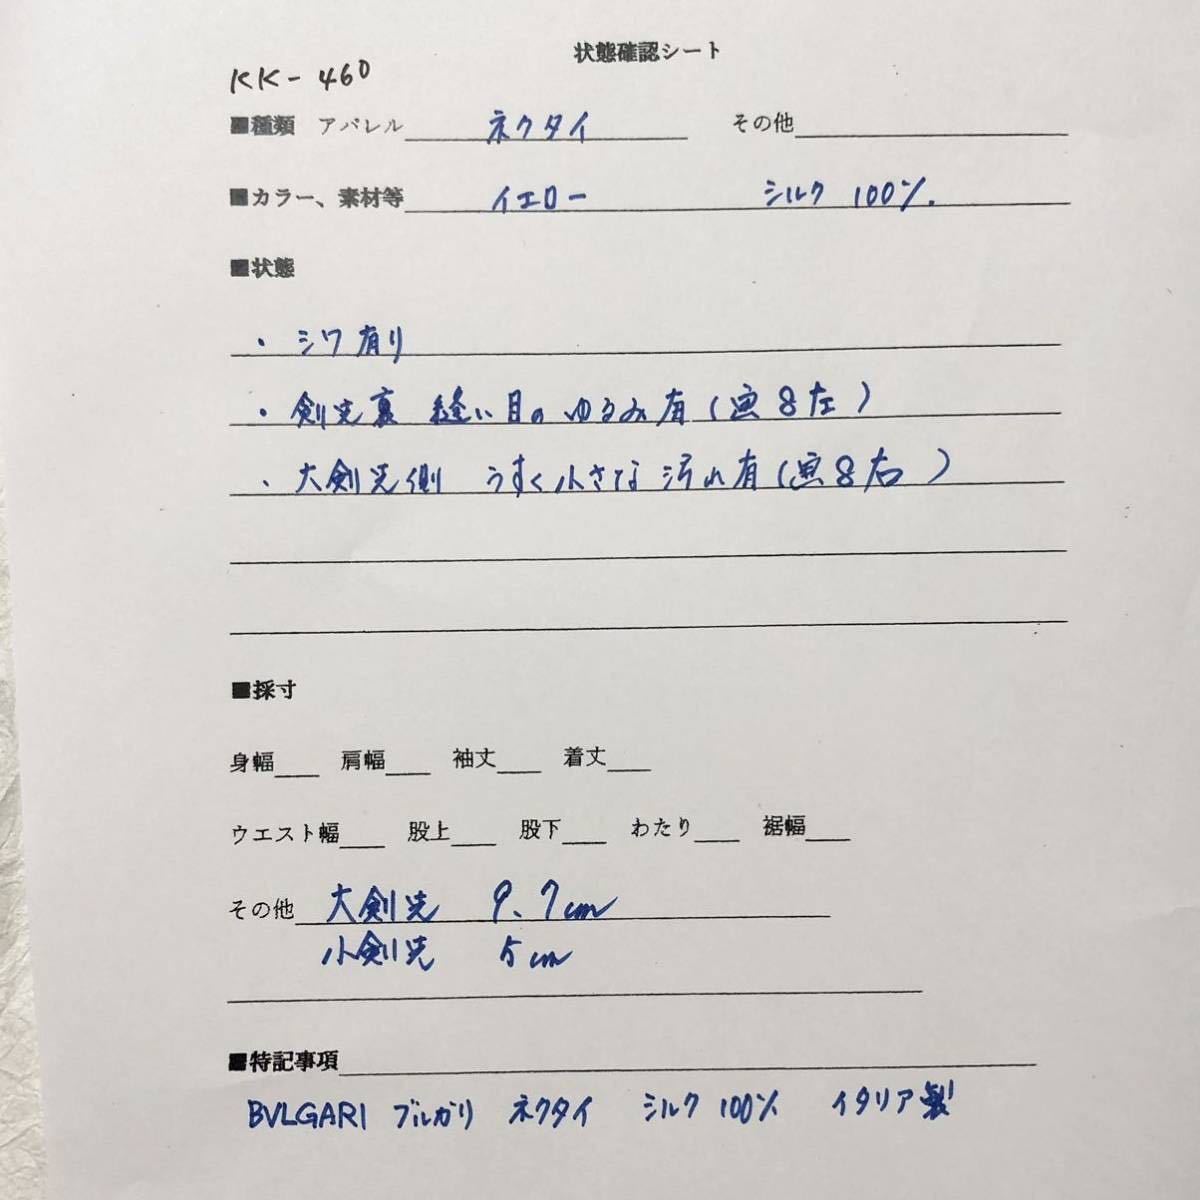 状態確認シート
KK-460
■種類 アパレル ネクタイ その他
■カラー、素材等 イエロー シルク 100%.
■状態
・シワ有り
・剣先裏 縫い目のゆるみ有(画8左)
・大剣先側 うすく小さな汚れ有(画8右)
■採寸
身幅 肩幅 袖丈 着丈
ウエスト幅 股上 股下 わたり 裾幅
その他 大剣先 9.7cm
小剣先 5cm
■特記事項
BVLGARI ブルガリ ネクタイ シルク 100% イタリア製